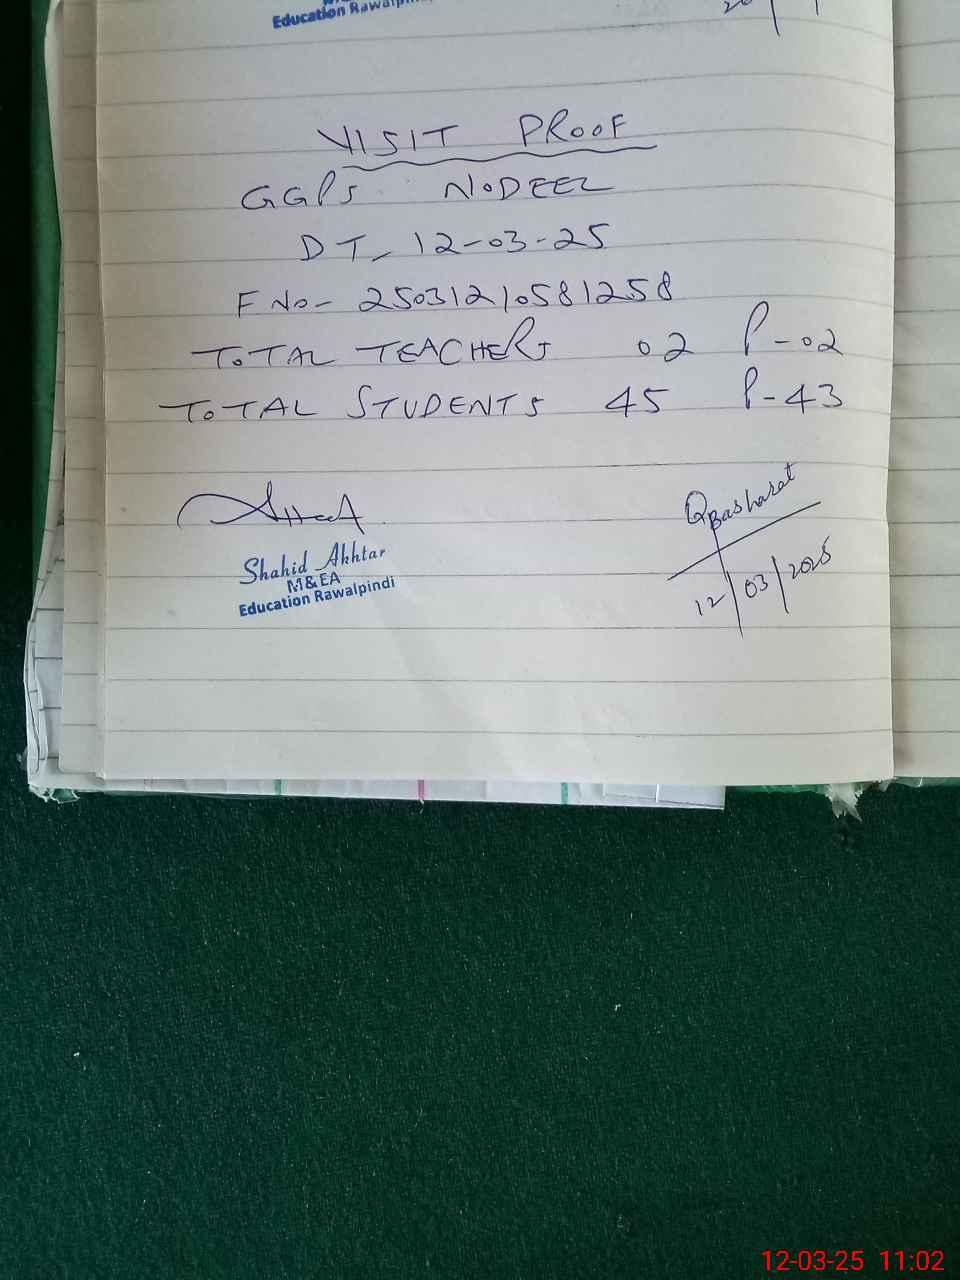 Education Rawalpin
VISIT PROOF
GGPS NODEEL
DT, 12-03-25
F No- 25031210581258
TOTAL TEACHERS 02 P-02
TOTAL STUDENTS 45 P-43
QBasharat
12/03/2025
Shahid Akhtar
M&EA
Education Rawalpindi
12-03-25 11:02